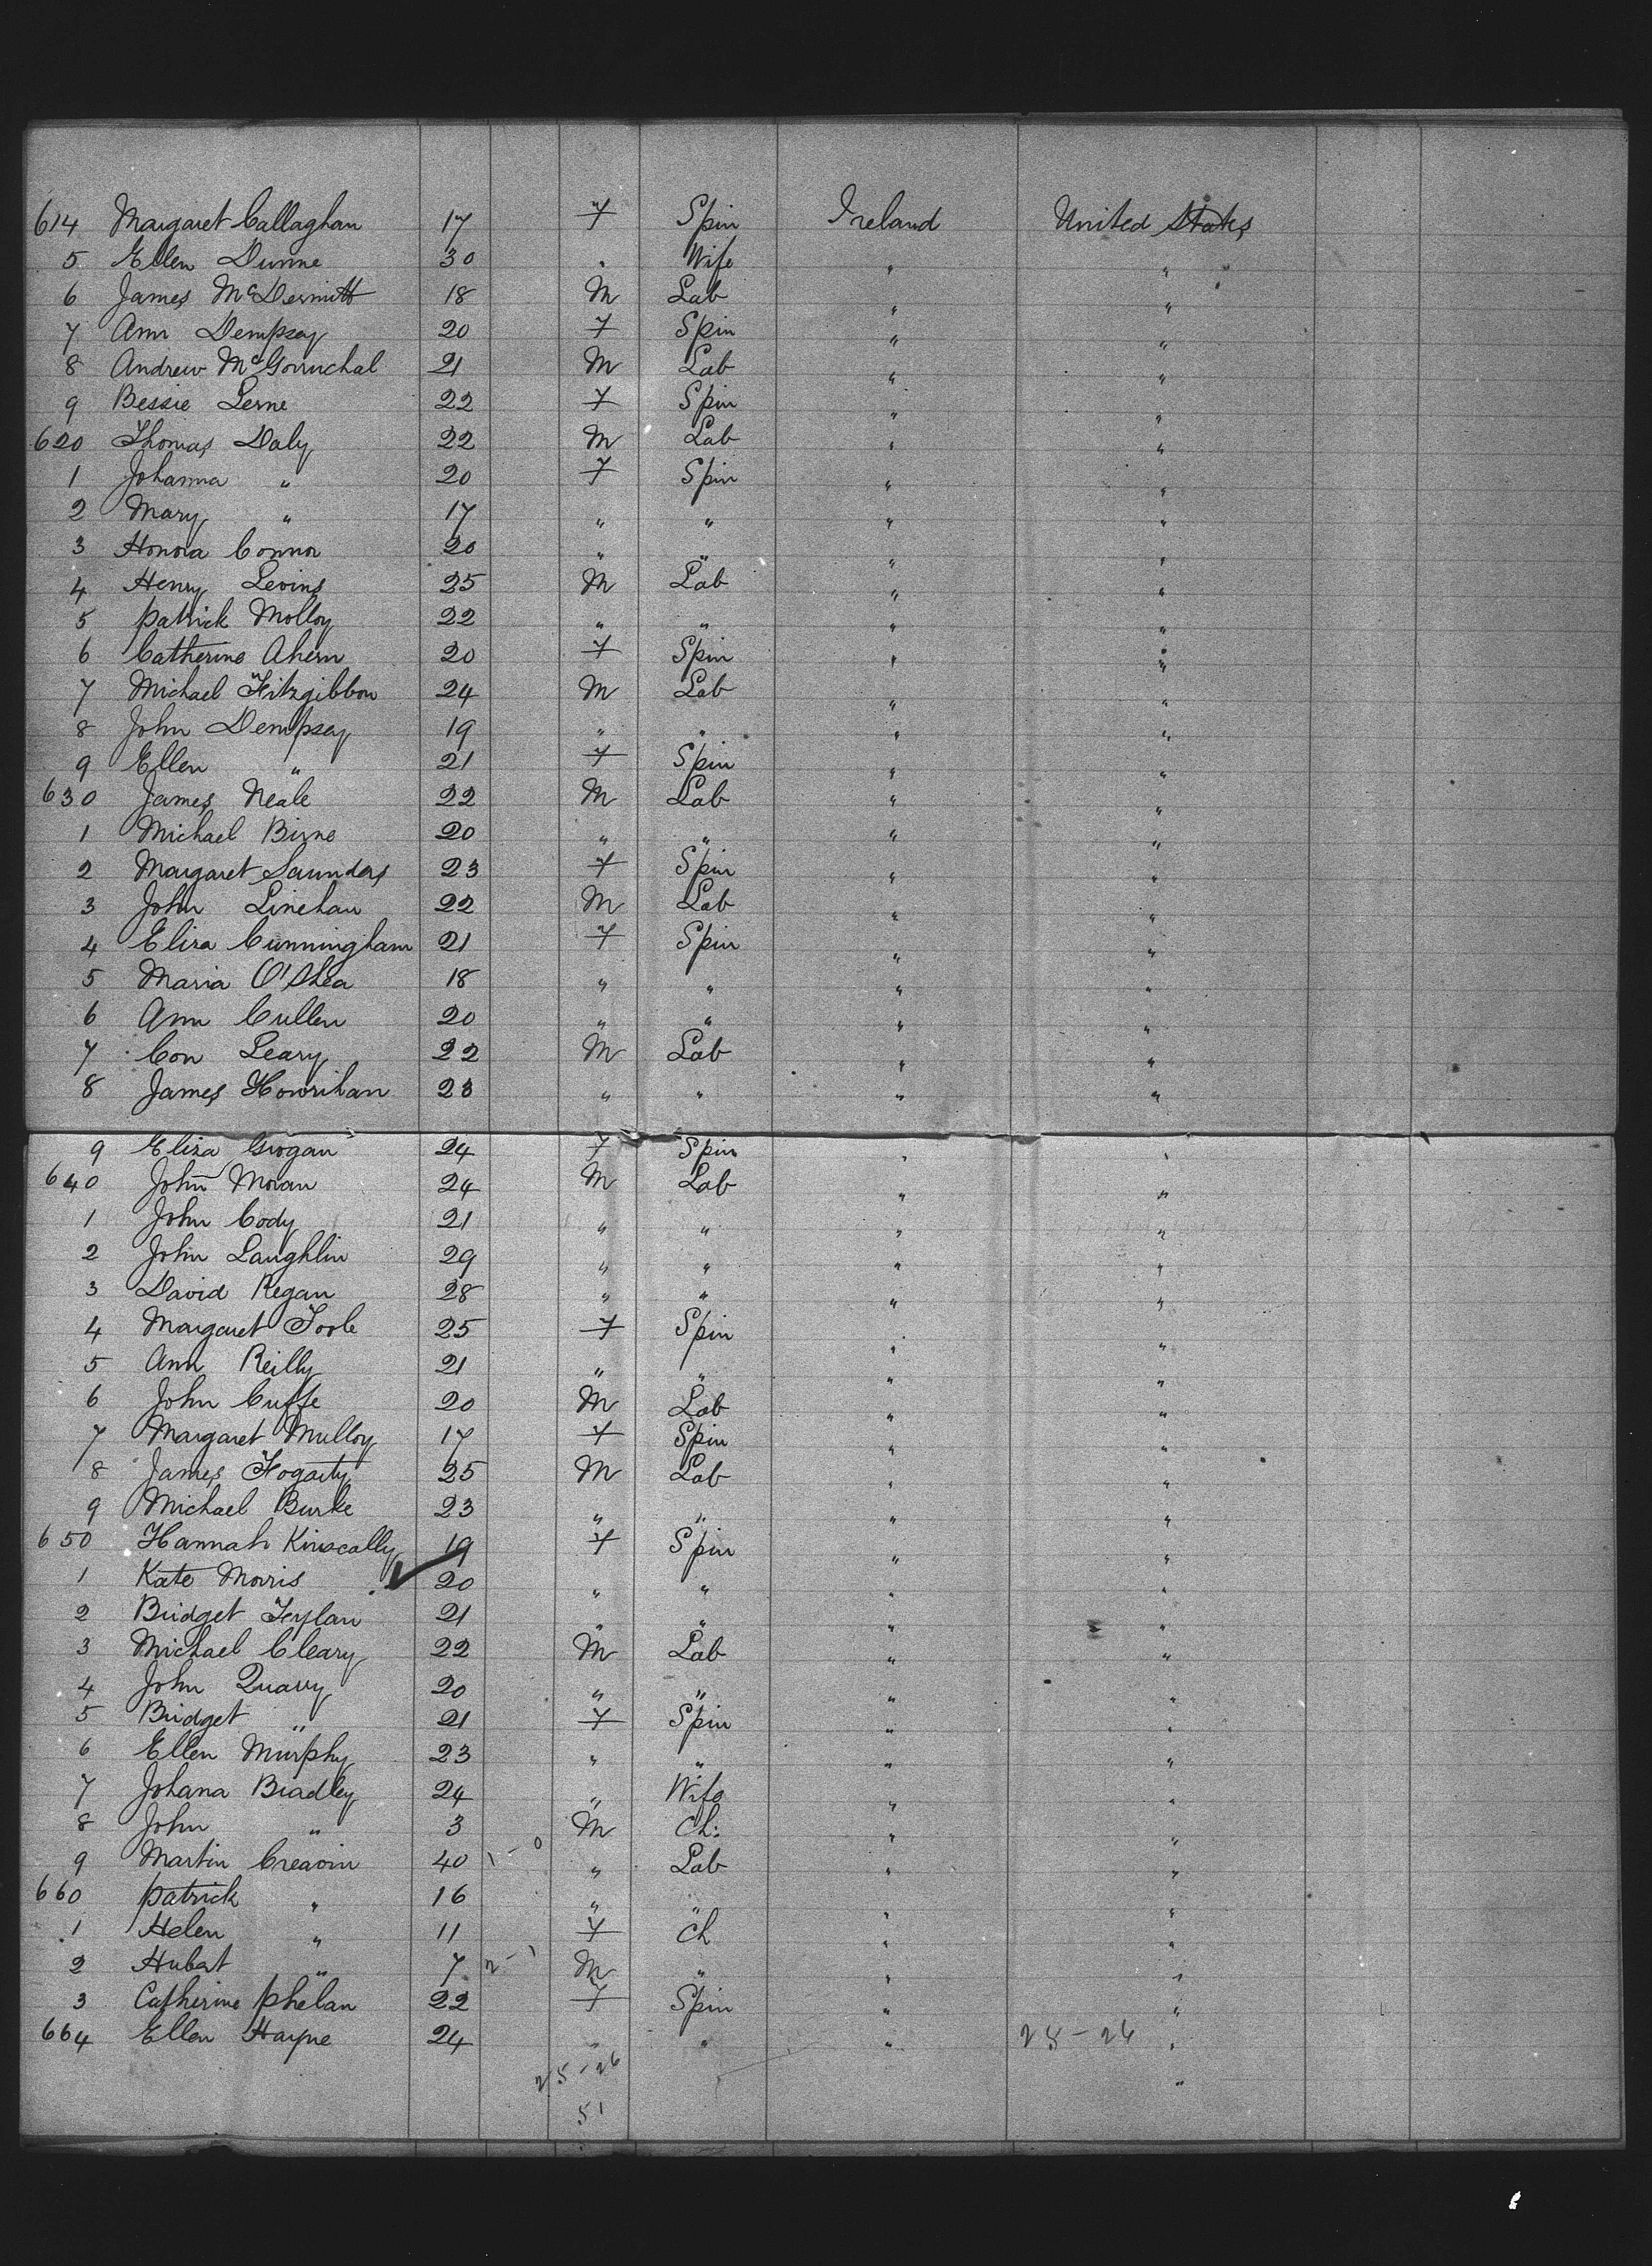 614 Margaret Callaghan 17 F Spin Ireland United States
5 Ellen Dunne 30 " Wife " "
6 James McDermitt 18 M Lab " "
7 Ann Dempsey 20 F Spin " "
8 Andrew 21 M Lab " "
9 Bessie Lerne 22 F Spin " "
620 Thomas Daly 22 M Lab " "
1 Johanna " 20 F Spin " "
2 Mary " 17 " " " "
3 Honora Connor 20 " " " "
4 Henry Levins 25 M Lab " "
5 Patrick Molloy 22 " " " "
6 Catherine Ahern 20 F Spin " "
7 Michael Fitzgibbon 24 M Lab " "
8 John Dempsey 19 " " " "
9 Ellen " 21 F Spin " "
630 James Neale 22 M Lab " "
1 Michael Birne 20 " " " "
2 Margaret Saunders 23 F Spin " "
3 John Linehan 22 M Lab " "
4 Eliza Cunningham 21 F Spin " "
5 Maria O'Shea 18 " " " "
6 Ann Cullen 20 " " " "
7 Con Leary 22 M Lab " "
8 James Hourihan 23 " " " "
9 Eliza Grogan 24 F Spin " "
640 John Moran 24 M Lab " "
1 John Cody 21 " " " "
2 John Laughlin 29 " " " "
3 David Regan 28 " " " "
4 Margaret Toole 25 F Spin " "
5 Ann Reilly 21 " " " "
6 John Cuffe 20 M Lab " "
7 Margaret Mulloy 17 F Spin " "
8 James Fogarty 25 M Lab " "
9 Michael Burke 23 " " " "
650 Hannah Kinscally 19 F Spin " "
1 Kate Morris ✓ 20 " " " "
2 Bridget 21 " " " "
3 Michael Cleary 22 M Lab " "
4 John Quarry 20 " " " "
5 Bridget " 21 F Spin " "
6 Ellen Murphy 23 " " " "
7 Johana Bradley 24 " Wife " "
8 John " 3 M Ch: " "
9 Martin Creavin 40 1-0 " Lab " "
660 Patrick " 16 " " " "
1 Helen " 11 F Ch " "
2 Hubert " 7 2-1 M " " "
3 Catherine Phelan 22 F Spin " "
664 Ellen Hayne 24 " " " 25-26 "
25-26 "
51